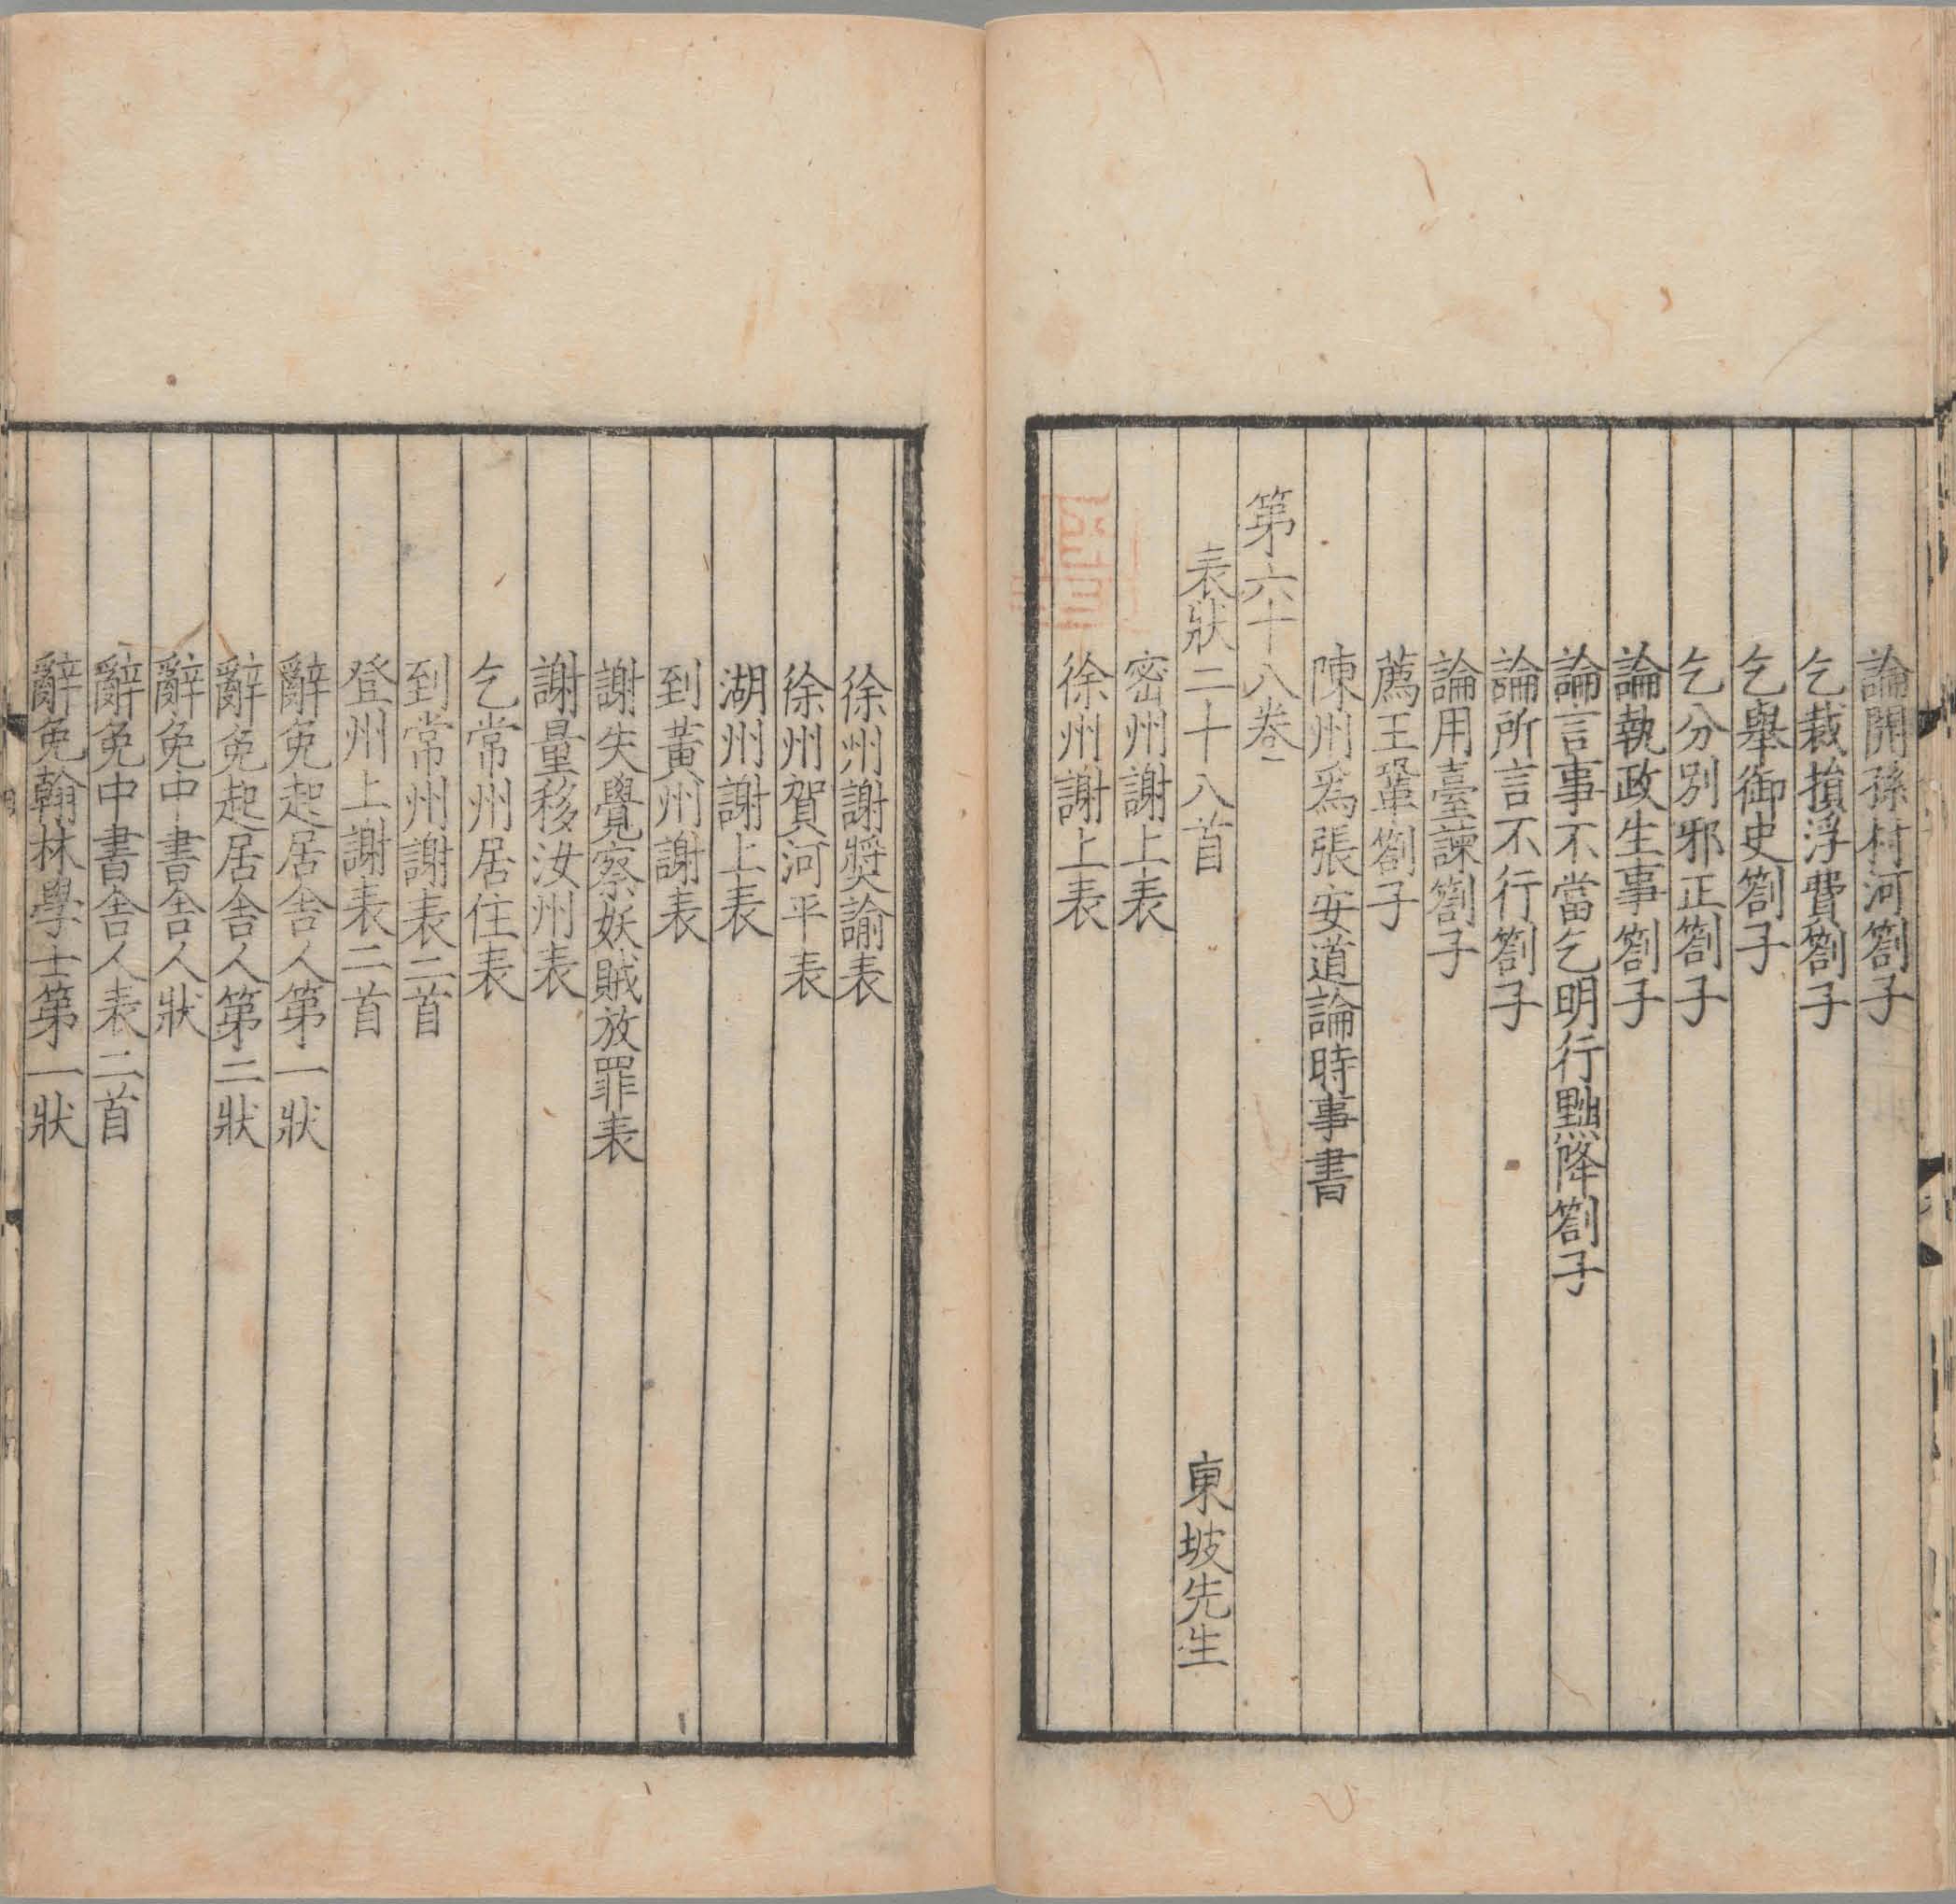 論開孫村河劄子
乞裁損浮費劄子
乞舉御史劄子
乞分別邪正劄子
論執政生事劄子
論言事不當乞明行黜降劄子
論所言不行劄子
論用臺諫劄子
薦王鞏劄子
陳州爲張安道論時事書
第六十八卷
表狀二十八首 東坡先生
密州謝上表
徐州謝上表
徐州謝奬諭表
徐州賀河平表
湖州謝上表
到黃州謝表
謝失覺察妖賊放罪表
謝量移汝州表
乞常州居住表
到常州謝表二首
登州上謝表二首
辭免起居舍人第一狀
辭免起居舍人第二狀
辭免中書舍人狀
辭免中書舍人表二首
辭免翰林學士第一狀